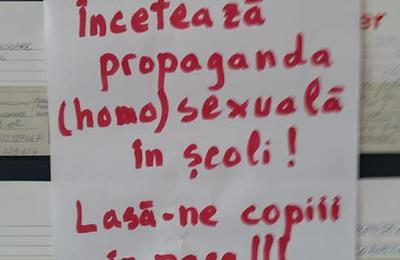 Încetează
propaganda
(homo)sexuală
în școli!
Lasă-ne copiii
în pace!!!